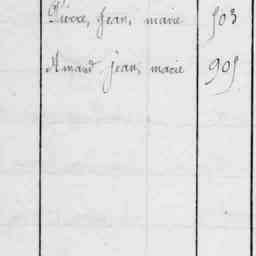 Pierre, Jean, marie 503
Amand Jean, marie 905